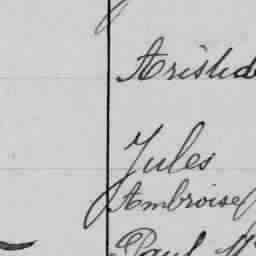 Aristide
Jules
Ambroise
Paul